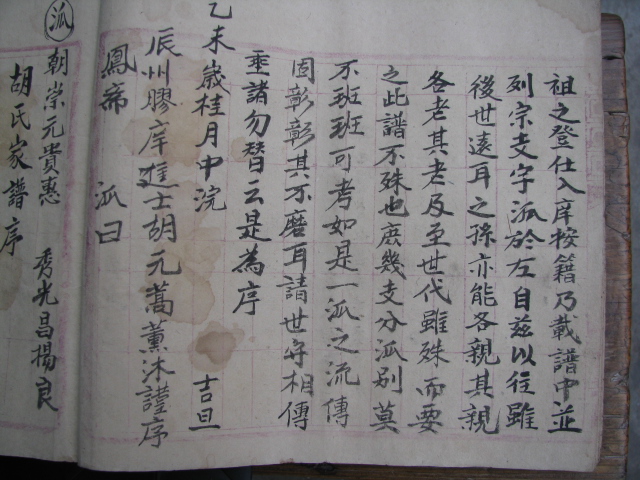 祖之登仕入庠按籍乃載譜中並
列宗支字派於左自兹以徃雖
後世遠耳之孫亦能各親其親
各老其老及至世代雖殊而要
之此譜不殊也庻幾支分派别莫
不班班可考如是一派之流傳
固彰彰其不磨耳請世守相傳
垂諸勿替云是為序
乙未歲桂月中浣 吉旦
辰州膠庠進士胡元蒿薰沐謹序
鳳 派曰
派 朝崇元貴惠 秀光昌揚良
胡氏家譜序